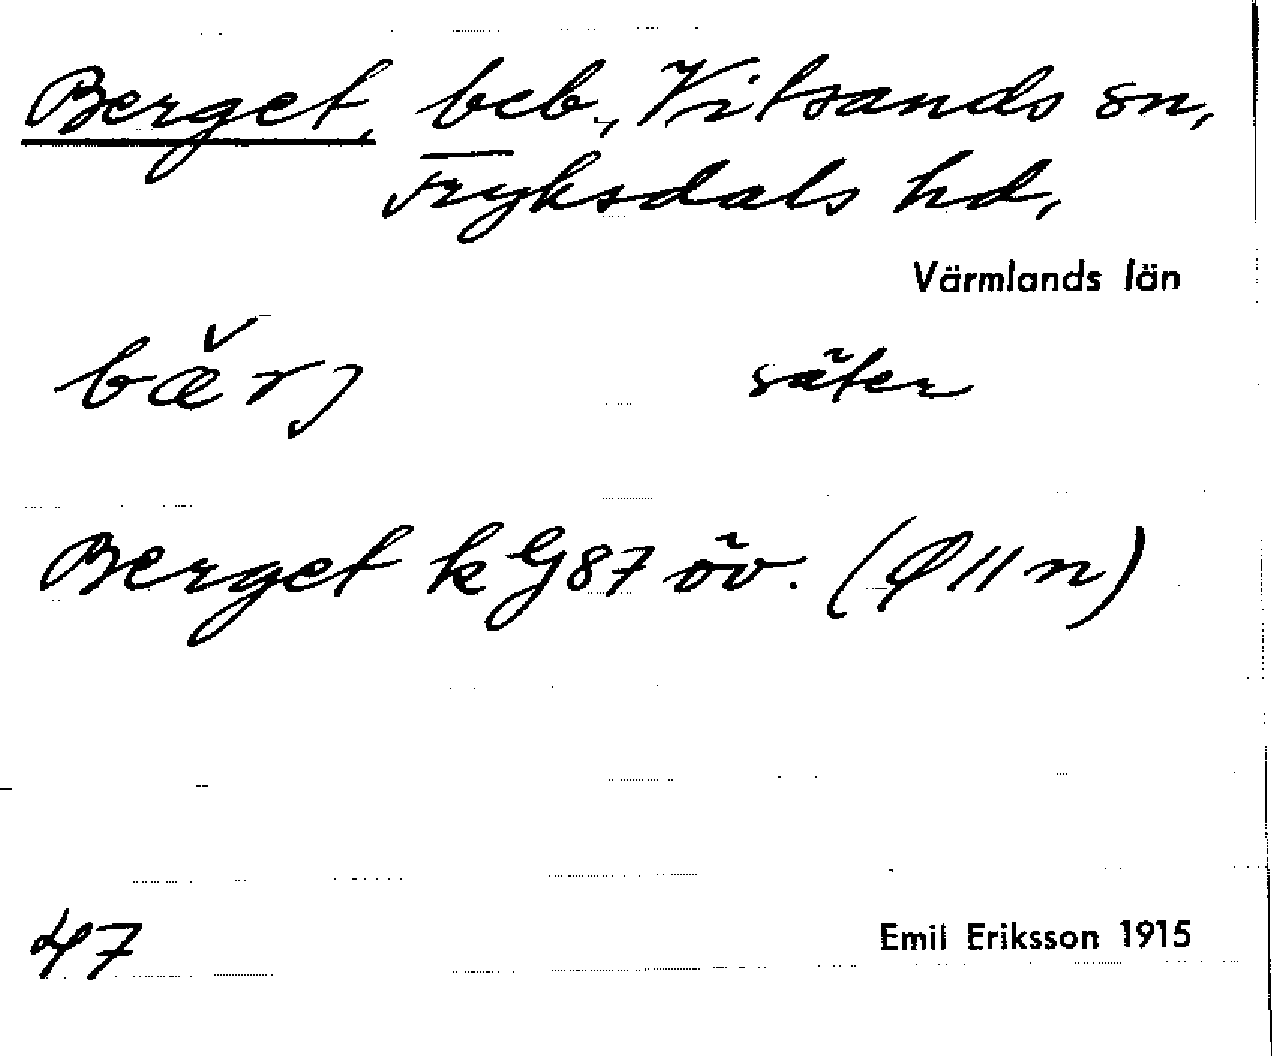 Berget, beb., Vitsands sn,
Fryksdals hd,
Värmlands län
bæ̌rj säter
Berget k G87 öv. (Ø 11 n)
47
Emil Eriksson 1915